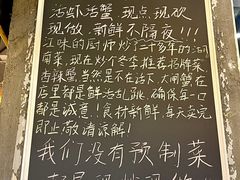 活虾活蟹.现点.现砍
现做.新鲜不隔夜!!!
江味的厨师炒了二十多年的江湖
南菜,现在炒个冬季推荐招牌菜
香辣蟹当然是不在话下.大闸蟹在
店里都是鲜活乱跳.确保每一口
都是诚意!!食材新鲜.每天卖完
即止敬请谅解!
我们没有预制菜
都是现炒现做